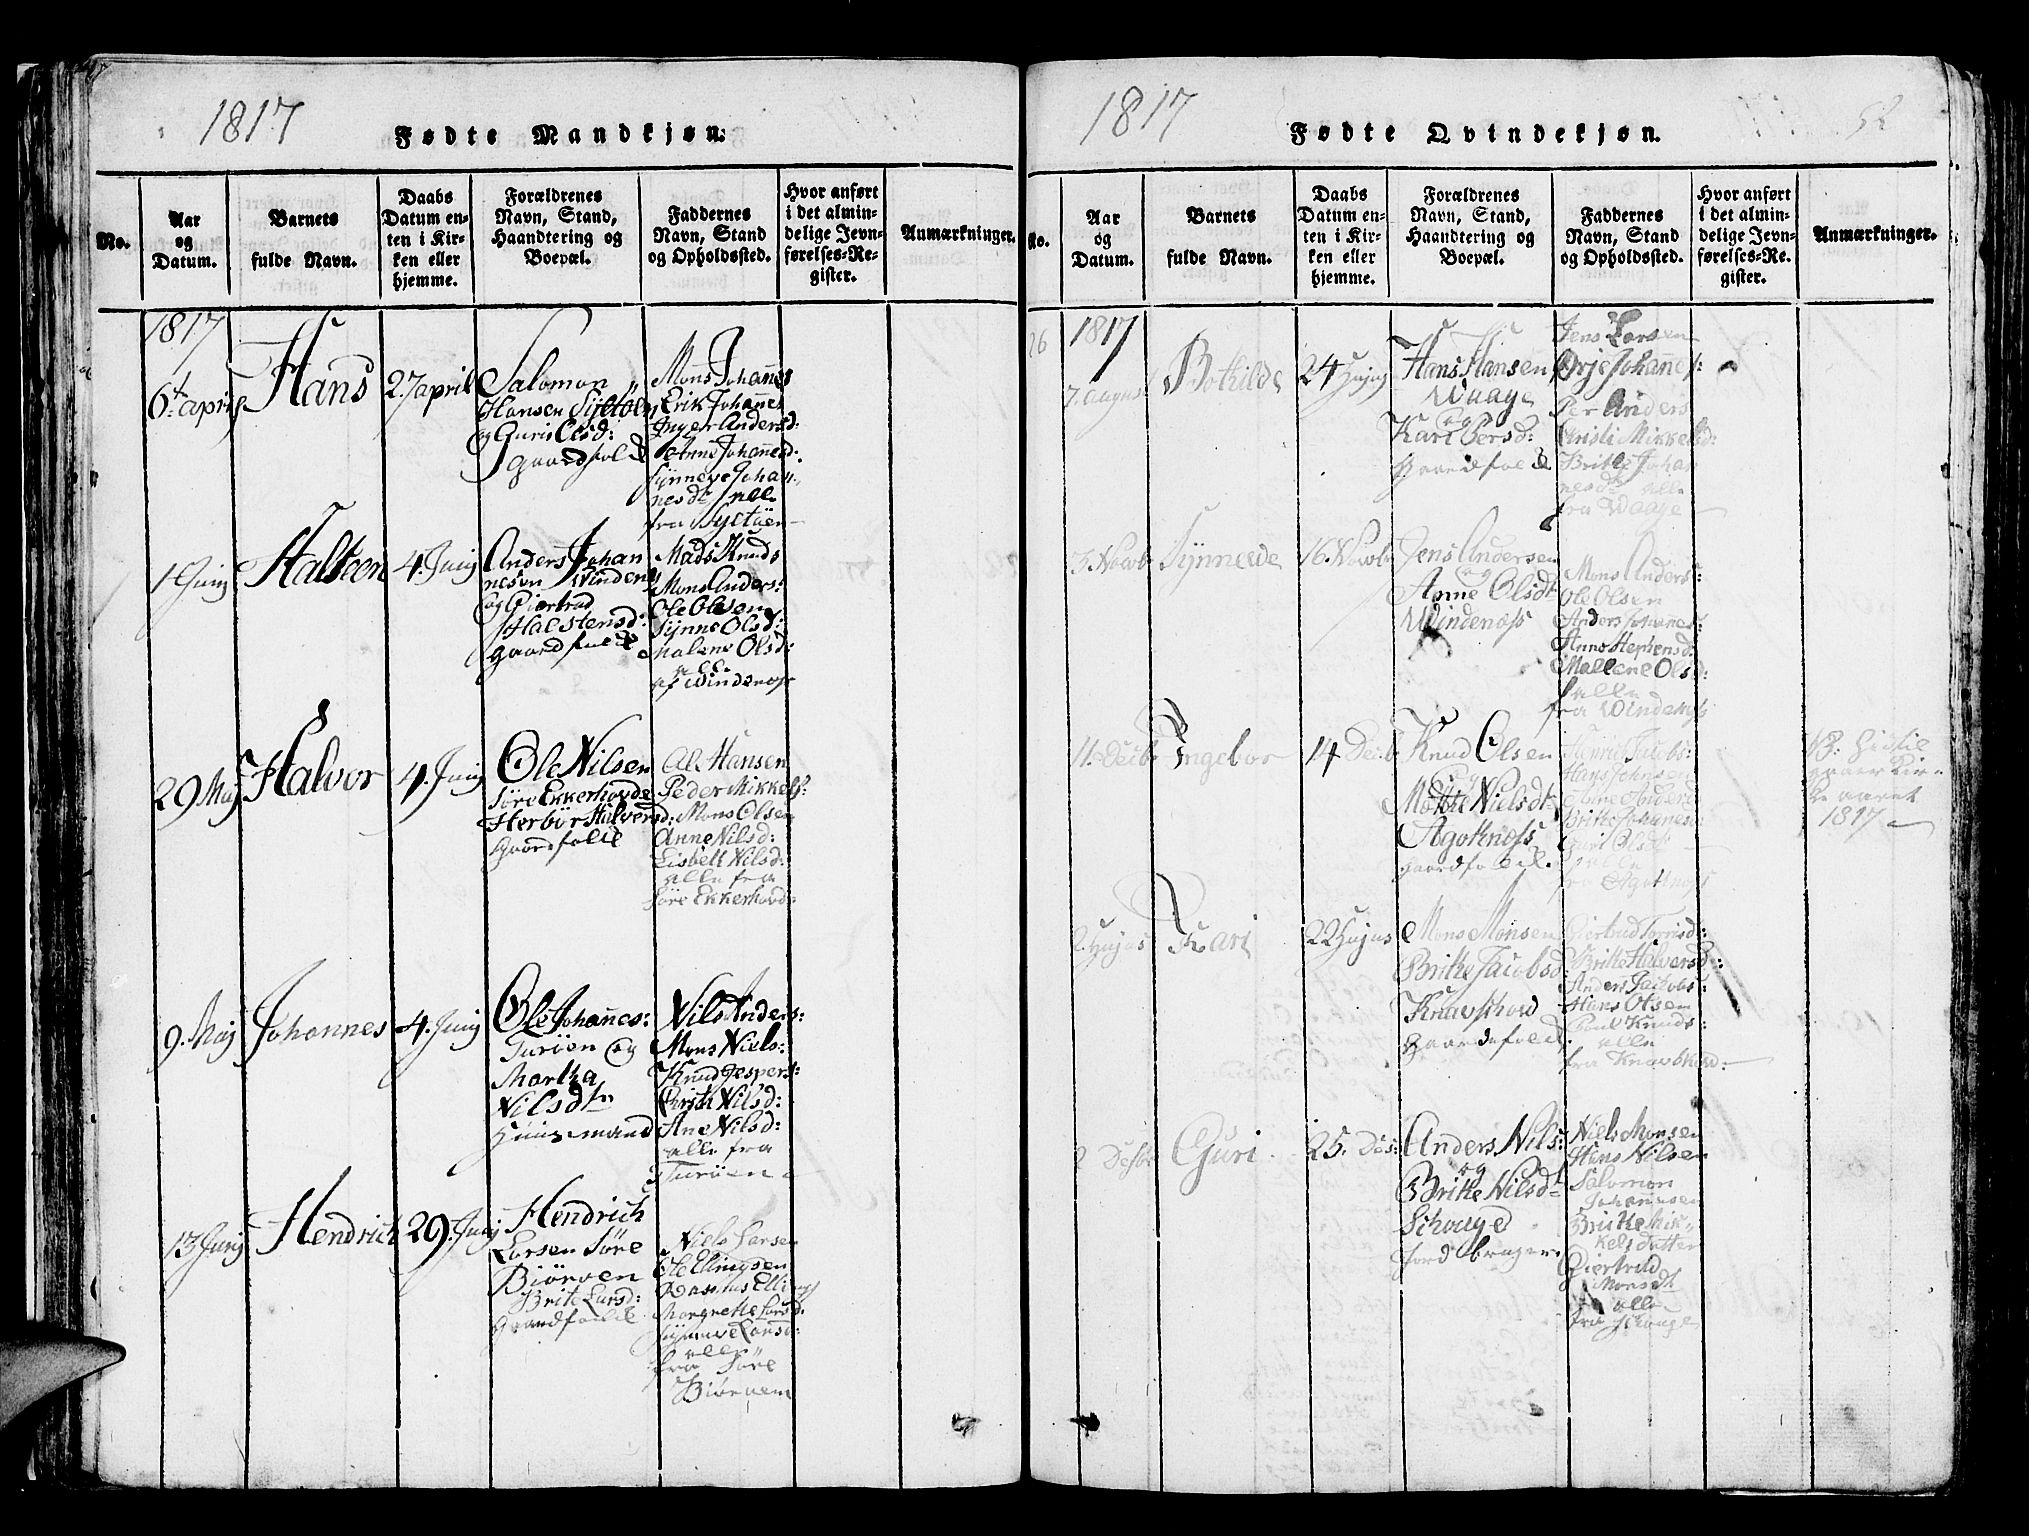 1817
Fødte Mandkjøn.
No.
Aar
og
Datum.
Barnets
fulde Navn.
Daabs
Datum en-
ten i Kir-
ken eller
hjemme.
Forældrenes
Navn, Stand,
Haandtering og
Boepæl.
Faddernes
Navn, Stand
og Opholdssted.
Hvor anført
i det almin-
delige Jevn-
førelses-Re-
gister.
Anmærkninger.
1817
6t april
Hans
27 april
Salomon
Hansen Syltøen
og Guri Olsd:
gaardfolk
Mons Johannes
Erik Johannes
Inger Andersd:
Anne Johannesd:
Synneve Johan-
nesdt alle
fra Syltøen
1 Junij
Halsteen
4. Junij
Anders Johan
nesen Windenes
og Giertrud
Halstensd:
gaardfolk
Mads Knuds
Mons Anders:
Ole Olsen
Synne Olsd:
Malene Olsd:
alle
af Windenæs
29 Maj
Halvor
4. Junij
Ole Nilsen
Søre Ekkerhovde
Herbor Halversd:
gaardfolk
Ole Hansen
Peder Mikkels:
Mons Olsen
Anne Nilsd:
Lisbeth Nilsd:
alle fra
Søre Ekkerhovde
9. Maj
Johannes
4. Junij
Ole Johanes:
Turøen og
Martha
Nilsdtr
Huusmand
Nils Anders:
Mons Niels:
Knud Jespers:
Christi Nilsd:
Ane Nilsd:
alle fra
Turøen
13 Junij
Hendrich
29. Junij
Hendrich
Larsen Søre
Biøroen
Brite Larsd:
Gaardfolk
Niels Larsen
Ole Ellingsen
Rasmus Ellings
Margrethe Larsd:
Synneve Larsd:
alle
fra Søre
Biøroen
1817
Fødte Qvindekjøn.
52
No.
Aar
og
Datum.
Barnets
fulde Navn.
Daabs
Datum en-
ten i Kir-
ken eller
hjemme.
Forældrenes
Navn, Stand,
Haandtering og
Boepæl.
Faddernes
Navn, Stand
og Opholdssted.
Hvor anført
i det almin-
delige Jevn-
førelses-Re-
gister.
Anmærkninger.
26
1817
7. august
Bothilde
24 Hujus
Hans Hansen
Waage
og
Kari Persd:
Gaardfolk
Jens Larsen
Børje Johannes:
Per Anders
Christi Mikkelsd:
Britte Johan
nesdt alle
fra Waage
3. Novbr
Synneve
16. Novbr
Jens Andersen
og
Anne Olsdt
Windenæss
Mons Anders:
Ole Olsen
Anders Johannes:
Anne Stephensd.
Mallene Olsd:
alle
fra Windenæss
11. Decbr
Ingebor
14 Decb
Knud Olsen
og
Motte Nielsdt
Agotnæss
gaardfolk.
Hans Johnsen
Anne Andersd
Britte Johannesd:
Guri Olsdt
alle
fra Agotnæss
NB: Sidste
gaaer Kir-
ke aaret
1817
2 Hujus
Kari
22 Hujus
Mons Monsen
Britte Jacobsd
Knavschow
Gaardefolk.
Giertrud Torrisd:
Britte Halversd:
Anders Jacobs:
Hans Olsen
Poul Knuds:
alle
fra Knavskow:
2 Desbr
Guri
25. Des:
Anders Nils:
og
Britte Nilsdt
Schouge
jordbruger
Niels Monsen
Hans Nilsen
Salomon
Johannesen
Britte Mik-
kels datter
Giertrud
Monsdt
alle
fra Schouge